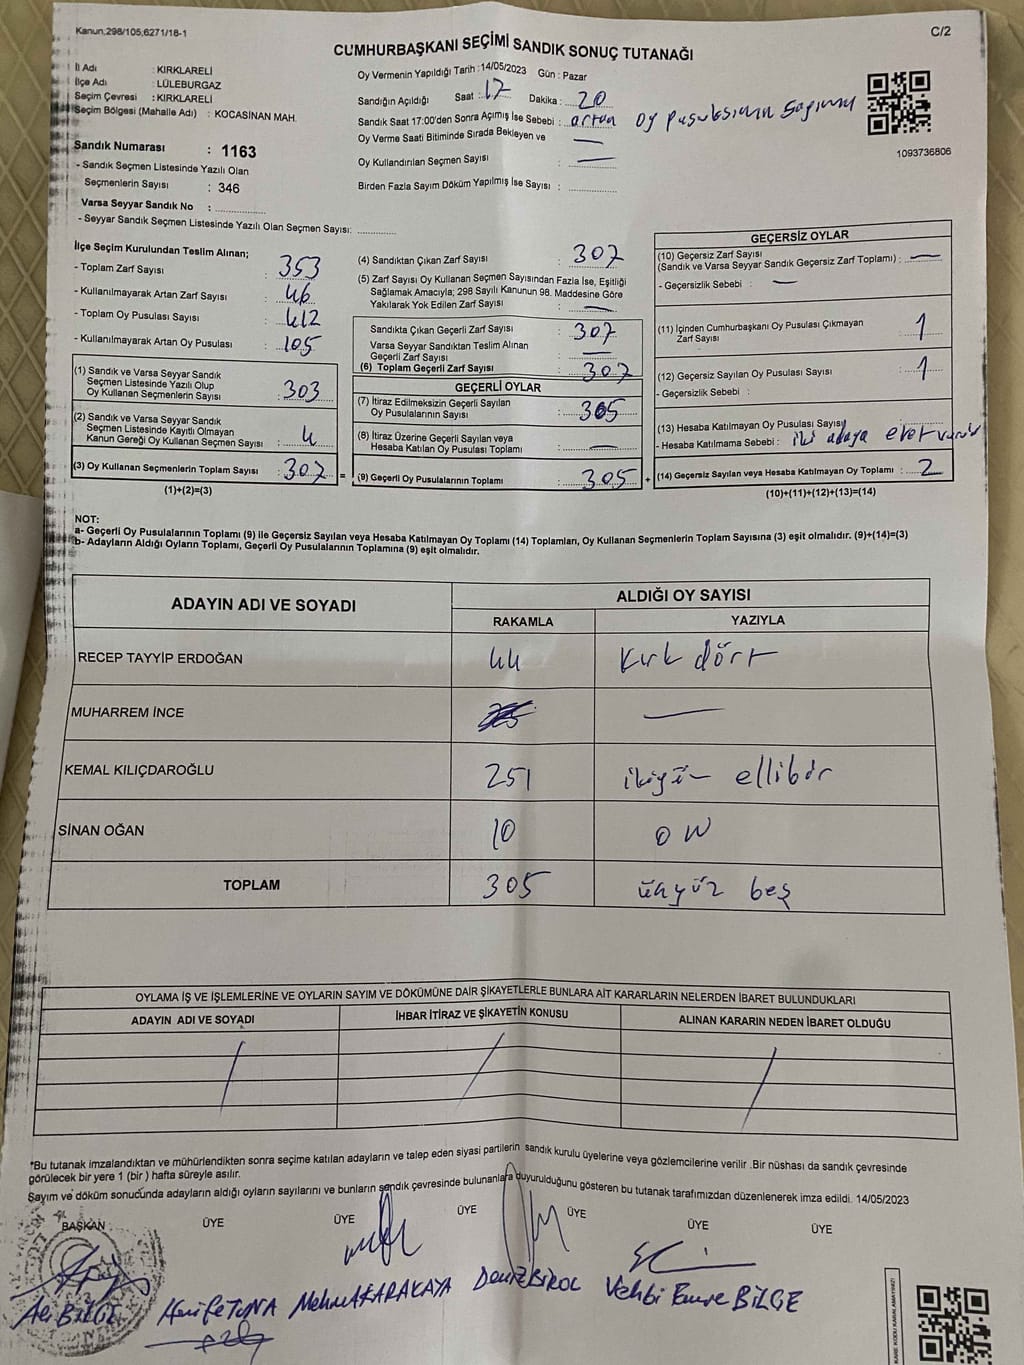 Kanun,298/105,6271/18-1
C/2
CUMHURBAŞKANI SEÇİMİ SANDIK SONUÇ TUTANAĞI
İl Adı : KIRKLARELİ
İlçe Adı : LÜLEBURGAZ
Seçim Çevresi : KIRKLARELİ
Seçim Bölgesi (Mahalle Adı) : KOCASİNAN MAH.
Sandık Numarası : 1163
- Sandık Seçmen Listesinde Yazılı Olan
Seçmenlerin Sayısı : 346
Varsa Seyyar Sandık No :
- Seyyar Sandık Seçmen Listesinde Yazılı Olan Seçmen Sayısı:
Oy Vermenin Yapıldığı Tarih :14/05/2023 Gün : Pazar
Sandığın Açıldığı Saat : 17 Dakika : 20
Sandık Saat 17:00'den Sonra Açımış İse Sebebi : artan oy pusulasının sayımı
Oy Verme Saati Bitiminde Sırada Bekleyen ve : —
Oy Kullandırılan Seçmen Sayısı : —
Birden Fazla Sayım Döküm Yapılmış İse Sayısı :
1093736806
İlçe Seçim Kurulundan Teslim Alınan;
- Toplam Zarf Sayısı : 353
- Kullanılmayarak Artan Zarf Sayısı : 46
- Toplam Oy Pusulası Sayısı : 412
- Kullanılmayarak Artan Oy Pusulası : 105
(1) Sandık ve Varsa Seyyar Sandık
Seçmen Listesinde Yazılı Olup
Oy Kullanan Seçmenlerin Sayısı : 303
(2) Sandık ve Varsa Seyyar Sandık
Seçmen Listesinde Kayıtlı Olmayan
Kanun Gereği Oy Kullanan Seçmen Sayısı : 4
(3) Oy Kullanan Seçmenlerin Toplam Sayısı : 307 =
(1)+(2)=(3)
(4) Sandıktan Çıkan Zarf Sayısı : 307
(5) Zarf Sayısı Oy Kullanan Seçmen Sayısından Fazla İse, Eşitliği
Sağlamak Amacıyla; 298 Sayılı Kanunun 98. Maddesine Göre
Yakılarak Yok Edilen Zarf Sayısı : —
Sandıkta Çıkan Geçerli Zarf Sayısı : 307
Varsa Seyyar Sandıktan Teslim Alınan
Geçerli Zarf Sayısı : —
(6) Toplam Geçerli Zarf Sayısı : 307
GEÇERLİ OYLAR
(7) İtiraz Edilmeksizin Geçerli Sayılan
Oy Pusulalarının Sayısı : 305
(8) İtiraz Üzerine Geçerli Sayılan veya
Hesaba Katılan Oy Pusulası Toplamı : —
(9) Geçerli Oy Pusulalarının Toplamı : 305 +
GEÇERSİZ OYLAR
(10) Geçersiz Zarf Sayısı
(Sandık ve Varsa Seyyar Sandık Geçersiz Zarf Toplamı) : —
- Geçersizlik Sebebi : —
(11) İçinden Cumhurbaşkanı Oy Pusulası Çıkmayan
Zarf Sayısı : 1
(12) Geçersiz Sayılan Oy Pusulası Sayısı : 1
- Geçersizlik Sebebi :
(13) Hesaba Katılmayan Oy Pusulası Sayısı
- Hesaba Katılmama Sebebi : iki adaya evet
(14) Geçersiz Sayılan veya Hesaba Katılmayan Oy Toplamı : 2
(10)+(11)+(12)+(13)=(14)
NOT:
a- Geçerli Oy Pusulalarının Toplamı (9) ile Geçersiz Sayılan veya Hesaba Katılmayan Oy Toplamı (14) Toplamları, Oy Kullanan Seçmenlerin Toplam Sayısına (3) eşit olmalıdır. (9)+(14)=(3)
b- Adayların Aldığı Oyların Toplamı, Geçerli Oy Pusulalarının Toplamına (9) eşit olmalıdır.
ADAYIN ADI VE SOYADI
ALDIĞI OY SAYISI
RAKAMLA YAZIYLA
RECEP TAYYİP ERDOĞAN 44 kırk dört
MUHARREM İNCE —
KEMAL KILIÇDAROĞLU 251 ikiyüz ellibir
SİNAN OĞAN 10 on
TOPLAM 305 üçyüz beş
OYLAMA İŞ VE İŞLEMLERİNE VE OYLARIN SAYIM VE DÖKÜMÜNE DAİR ŞİKAYETLERLE BUNLARA AİT KARARLARIN NELERDEN İBARET BULUNDUKLARI
ADAYIN ADI VE SOYADI İHBAR İTİRAZ VE ŞİKAYETİN KONUSU ALINAN KARARIN NEDEN İBARET OLDUĞU
/ / /
*Bu tutanak imzalandıktan ve mühürlendikten sonra seçime katılan adayların ve talep eden siyasi partilerin sandık kurulu üyelerine veya gözlemcilerine verilir .Bir nüshası da sandık çevresinde
görülecek bir yere 1 (bir ) hafta süreyle asılır.
Sayım ve döküm sonucunda adayların aldığı oyların sayılarını ve bunların sandık çevresinde bulunanlara duyurulduğunu gösteren bu tutanak tarafımızdan düzenlenerek imza edildi. 14/05/2023
BAŞKAN ÜYE ÜYE ÜYE ÜYE ÜYE ÜYE
Ali BİLGE Hanife TUNA Mehmet KARAKAYA Deniz BİROL Vehbi Emre BİLGE